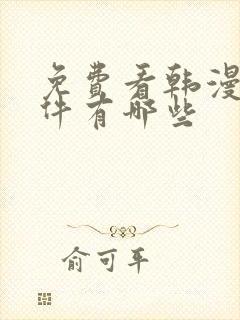 免费看韩漫
件有哪些
俞可平